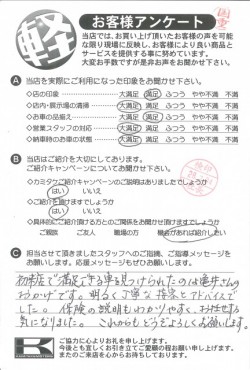 国重
軽
お客様アンケート
当店では、お買い上げ頂いたお客様の声を可能
な限り現場に反映し、お客様により良い商品と
サービスを提供する事に努めています。
大変お手数ですが是非お声をお聞かせ下さい。
A 当店を実際にご利用になった印象をお聞かせ下さい。
◇店の印象 大満足 満足 ふつう やや不満 不満
◇店内・展示場の清掃 大満足 満足 ふつう やや不満 不満
◇お車の品揃え 大満足 満足 ふつう やや不満 不満
◇営業スタッフの対応 大満足 満足 ふつう やや不満 不満
◇納車時のお車の状態 大満足 満足 ふつう やや不満 不満
B 当店はご紹介を大切にしております。
ご紹介キャンペーンについてお聞かせ下さい。
◇カミタケご紹介キャンペーンのご説明はありましたでしょうか
はい いいえ
◇ご紹介を頂けますでしょうか
はい いいえ
◇具体的にご紹介頂ける方とのご関係をお聞かせ頂けますでしょうか
ご親族 ご友人 職場の方 機会があれば紹介したい
C 担当させて頂きましたスタッフへのご指摘、ご指導メッセージを
お願いします。応援メッセージもぜひお願いします。
初来店で満足できる車を見つけられたのは亀井さんの
おかげです。明るく丁寧な接客とアドバイスで
した。保険の説明もわかりやすく、お任せする
気になりました。これからもどうぞよろしくお願いします。
K
ご協力に心よりお礼を申し上げます。
今後とも宜しくお引き立てご愛顧の程お願い申し上げます。
またのご来店を心からお待ちしております。